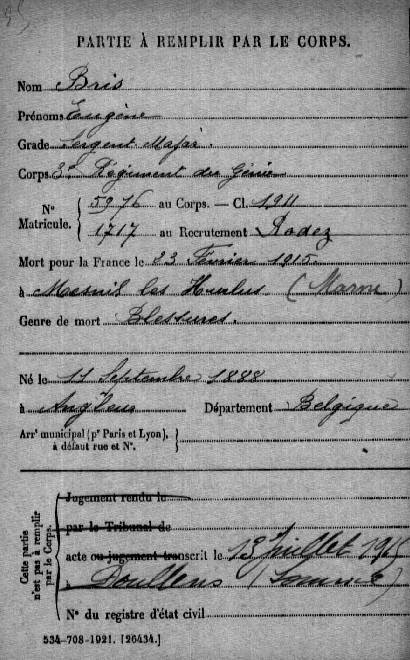 35
PARTIE À REMPLIR PAR LE CORPS.
Nom Bris
Prénoms Eugène
Grade Sergent-Major.
Corps 3e Régiment du Génie
Nº Matricule. { 5976 au Corps. — Cl. 1911
1717 au Recrutement Rodez
Mort pour la France le 23 Février 1915.
à Mesnil les Hurlus (Marne)
Genre de mort Blessures.
Né le 11 Septembre 1888
à Angleur Département Belgique
Arrt municipal (pr Paris et Lyon), à défaut rue et Nº. }
Cette partie n'est pas à remplir par le Corps. {
Jugement rendu le
par le Tribunal de
acte ou jugement transcrit le 13 juillet 1915
à Doullens (Somme)
Nº du registre d'état civil
534-708-1921. [26434.]